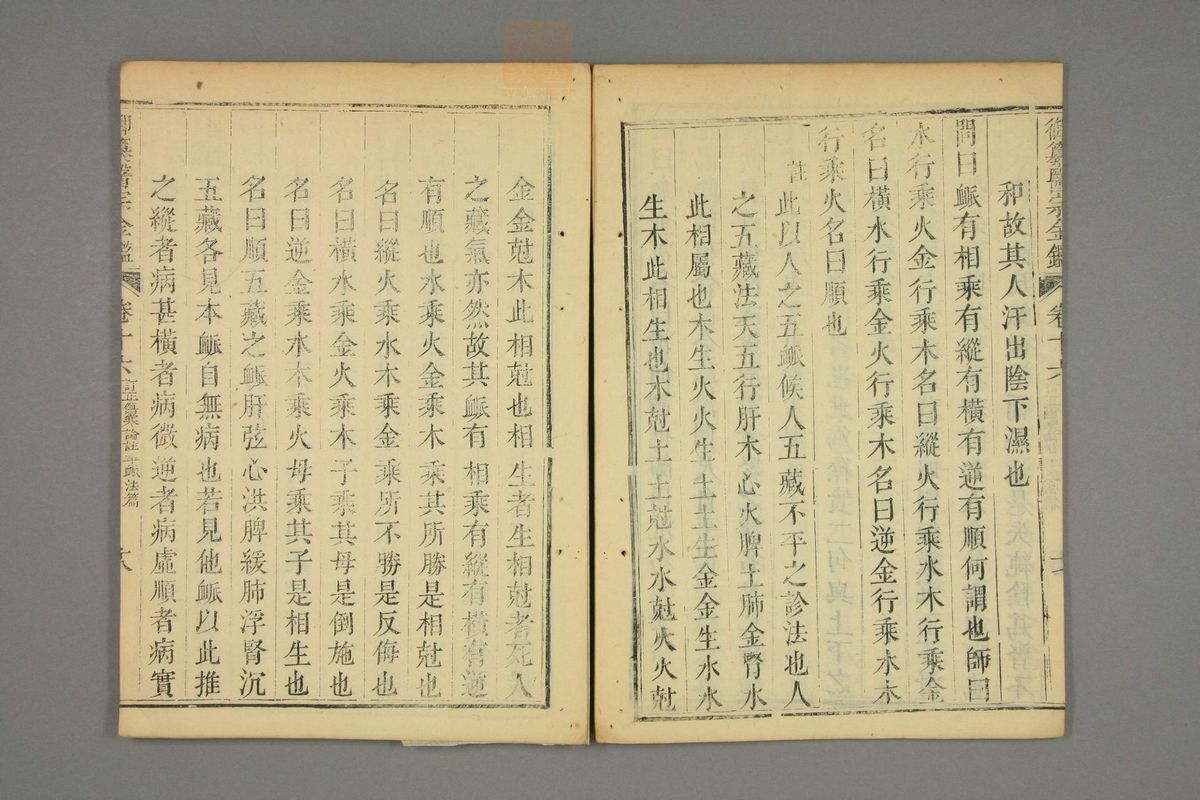 御纂醫宗金鑑 卷十六
和故其人汗出陰下濕也
問曰䘑有相乘有縱有橫有逆有順何謂也師曰
水行乘火金行乘木名曰縱火行乘水木行乘金
名曰橫水行乘金火行乘木名曰逆金行乘水木
行乘火名曰順也
註此以人之五䘑候人五藏不平之診法也人
之五藏法天五行肝木心火脾土肺金腎水
此相屬也木生火火生土土生金金生水水
生木此相生也木尅土土尅水水尅火火尅
金金尅木此相尅也相生者生相尅者死人
之藏氣亦然故其䘑有相乘有縱有橫有逆
有順也水乘火金乘木乘其所勝是相尅也
名曰縱火乘水木乘金乘所不勝是反侮也
名曰橫水乘金火乘木子乘其母是倒施也
名曰逆金乘水木乘火母乘其子是相生也
名曰順五藏之䘑肝弦心洪脾緩肺浮腎沉
五藏各見本䘑自無病也若見他䘑以此推
之縱者病甚橫者病微逆者病虛順者病實
御纂醫宗金鑑 卷十六 訂正傷寒論註平䘑法篇